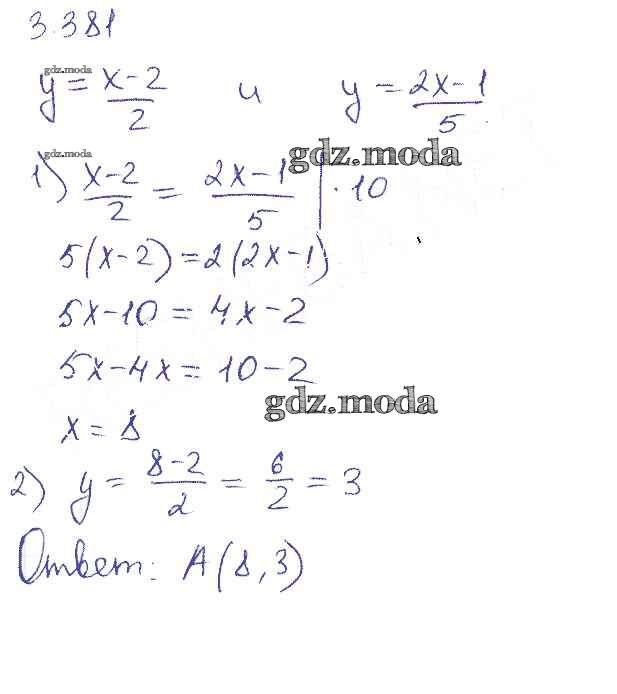 3.381
gdz.moda
y = (x-2)/2 и y = (2x-1)/5.
gdz.moda
gdz.moda
1) (x-2)/2 = (2x-1)/5 | · 10
5(x-2) = 2(2x-1)
5x-10 = 4x-2
5x-4x = 10-2
gdz.moda
x = 8
2) y = (8-2)/2 = 6/2 = 3
Ответ: A(8,3)